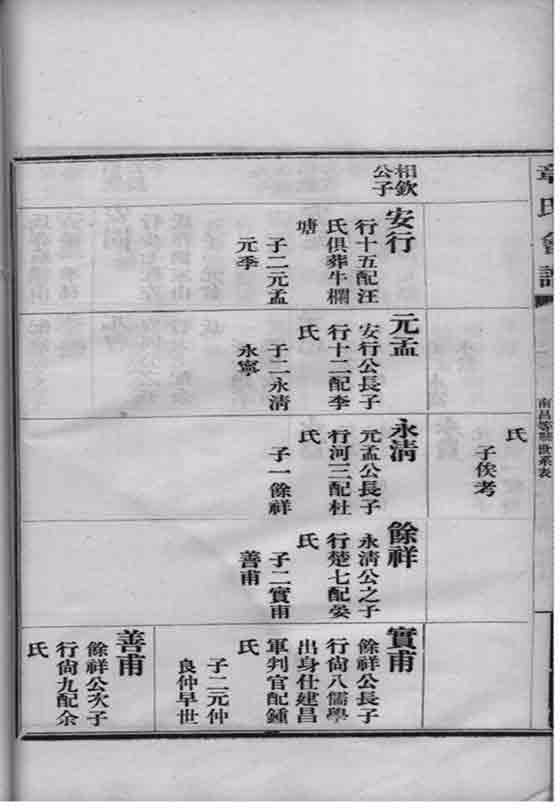 章氏會譜
南昌等縣世系表
氏
子俟考
相欽
公子
安行
行十五配汪
氏俱葬牛欄
塘
子二元孟
元季
元孟
安行公長子
行十二配李
氏
子二永清
永寧
永清
元孟公長子
行河三配杜
氏
子一餘祥
餘祥
永清公之子
行楚七配晏
氏
子二實甫
善甫
實甫
餘祥公長子
行尚八儒學
出身仕建昌
軍判官配鍾
氏
子二元仲
良仲早世
善甫
餘祥公次子
行尚九配余
氏